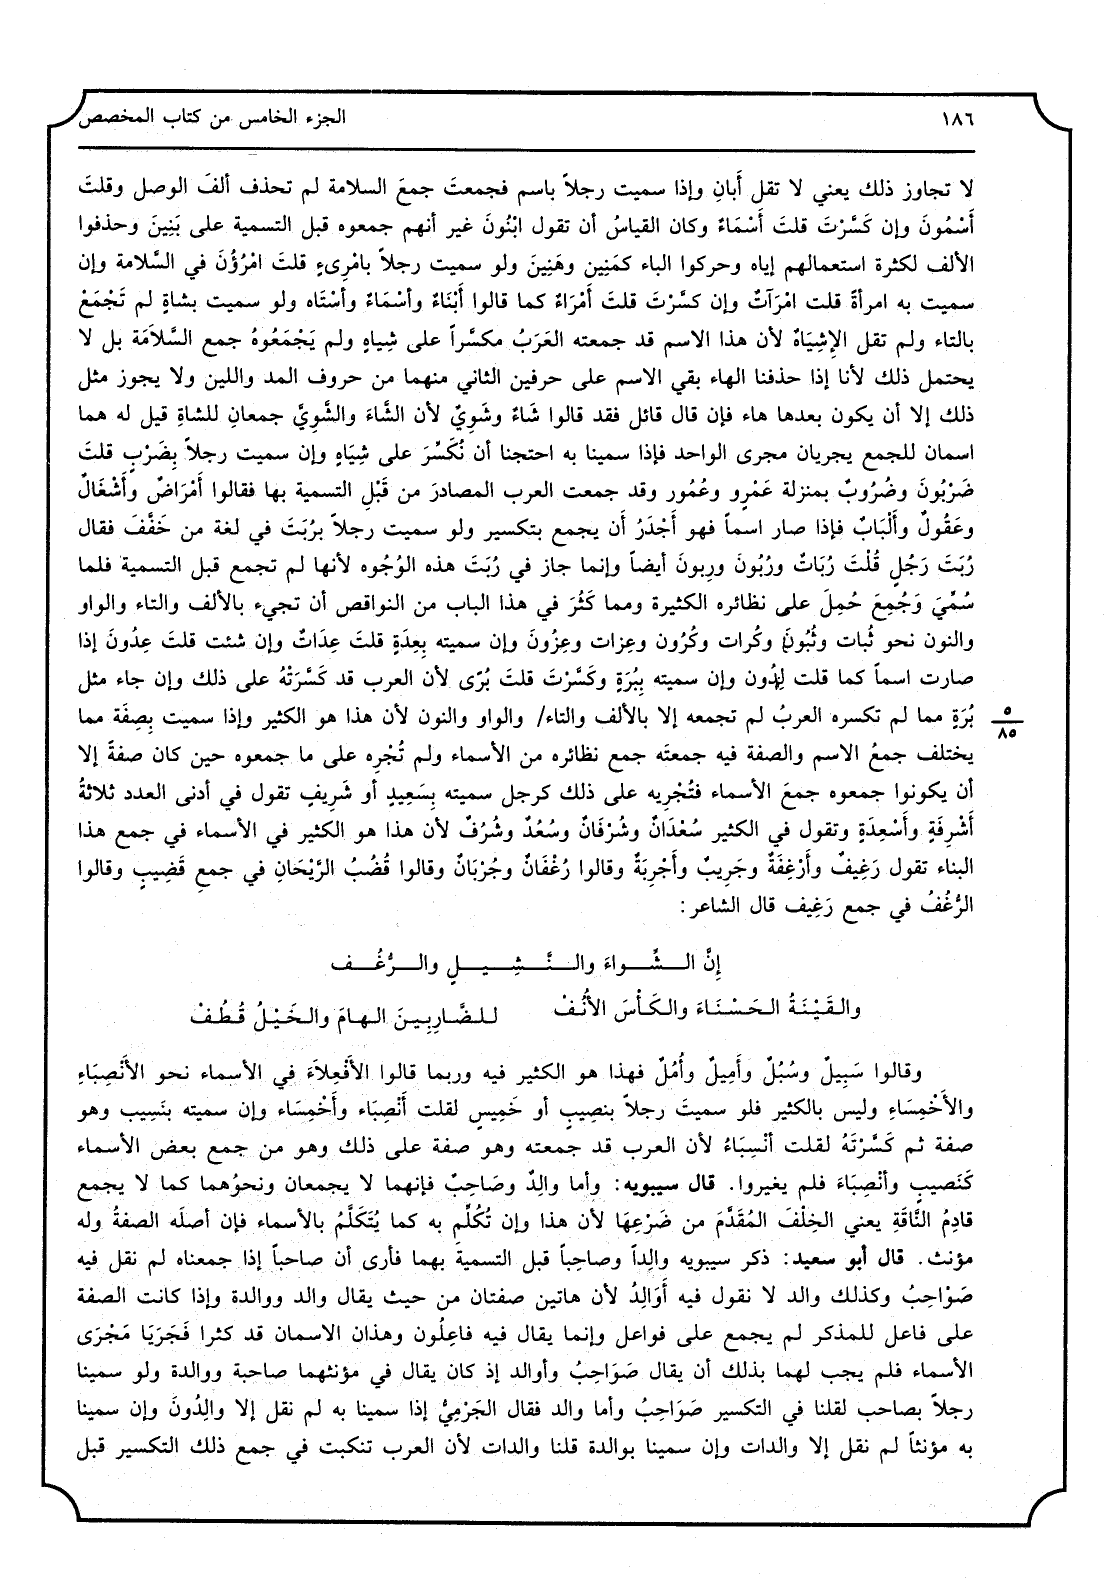 ١٨٦
الجزء الخامس من كتاب المخصص
لا تجاوز ذلك يعني لا تقل أَبانِ وإذا سميت رجلاً باسم فجمعتَ جمعَ السلامة لم تحذف ألفَ الوصل وقلتَ
أَسْمُونَ وإن كَسَّرْتَ قلتَ أَسْمَاءٌ وكان القياسُ أن تقول ابْنُونَ غير أنهم جمعوه قبل التسمية على بَنِينَ وحذفوا
الألف لكثرة استعمالهم إياه وحركوا الباء كمَنِين وهَنِينَ ولو سميت رجلاً بامْرِىءٍ قلتَ امْرُؤْنَ في السَّلامة وإن
سميت به امرأةً قلت امْرَآتٌ وإن كسَّرْتَ قلتَ أَمْرَاءٌ كما قالوا أَبْنَاءٌ وأَسْمَاءٌ وأَسْتَاه ولو سميت بشاةٍ لم تَجْمَعْ
بالتاء ولم تقل الإِشِيَاهُ لأن هذا الاسم قد جمعته العَرَبُ مكسَّراً على شِياهٍ ولم يَجْمَعُوهُ جمع السَّلاَمَة بل لا
يحتمل ذلك لأنا إذا حذفنا الهاء بقي الاسم على حرفين الثاني منهما من حروف المد واللين ولا يجوز مثل
ذلك إلا أن يكون بعدها هاء فإن قال قائل فقد قالوا شَاءٌ وشَوِيٌّ لأن الشَّاءَ والشَّوِيَّ جمعانِ للشاةِ قيل له هما
اسمان للجمع يجريان مجرى الواحد فإذا سمينا به احتجنا أن نُكَسِّرَ على شِيَاهٍ وإن سميت رجلاً بِضَرْبٍ قلتَ
ضَرْبُونَ وضُرُوبٌ بمنزلة عَمْرٍو وعُمُور وقد جمعت العرب المصادرَ من قَبْلِ التسمية بها فقالوا أَمْرَاضٌ وأَشْغَالٌ
وعَقُولٌ وأَلْبَابٌ فإذا صار اسماً فهو أَجْدَرُ أن يجمع بتكسير ولو سميت رجلاً برُبَتَ في لغة من خَفَّفَ فقال
رُبَتَ رَجُلٍ قُلْتَ رُبَاتٌ ورُبُونَ ورِبونَ أيضاً وإنما جاز في رُبَتَ هذه الوُجُوه لأنها لم تجمع قبل التسمية فلما
سُمِّيَ وَجُمِعَ حُمِلَ على نظائره الكثيرة ومما كَثُرَ في هذا الباب من النواقص أن تجيء بالألف والتاء والواو
والنون نحو ثُبات وثُبُونَ وكُرات وكُرُون وعِزات وعِزُونَ وإن سميته بِعِدَةٍ قلتَ عِدَاتٌ وإن شئت قلتَ عِدُونَ إذا
صارت اسماً كما قلت لِدُون وإن سميته بِبُرَةٍ وكَسَّرْتَ قلتَ بُرًى لأن العرب قد كَسَّرَتْهُ على ذلك وإن جاء مثل
بُرَةٍ مما لم تكسره العربُ لم تجمعه إلا بالألف والتاء/ والواو والنون لأن هذا هو الكثير وإذا سميت بِصِفَة مما
٥
٨٥
يختلف جمعُ الاسم والصفة فيه جمعتَه جمع نظائره من الأسماء ولم تُجْرِه على ما جمعوه حين كان صفةً إلا
أن يكونوا جمعوه جمعَ الأسماء فتُجْرِيه على ذلك كرجل سميته بِسَعِيدٍ أو شَرِيفٍ تقول في أدنى العدد ثلاثةُ
أَشْرِفَةٍ وأَسْعِدَةٍ وتقول في الكثير سُعْدَانٌ وشُرْفَانٌ وسُعُدٌ وشُرُفٌ لأن هذا هو الكثير في الأسماء في جمع هذا
البناء تقول رَغِيفٌ وأَرْغِفَةٌ وجَرِيبٌ وأَجْرِبَةٌ وقالوا رُغْفَانٌ وجُرْبَانٌ وقالوا قُضُبُ الرَّيْحَانِ في جمعِ قَضِيبٍ وقالوا
الرُّغُفُ في جمع رَغِيف قال الشاعر:
إِنَّ الـشِّـواءَ والـنَّـشِـيـلَ والـرُّغُـف
والقَيْنَةُ الحَسْنَاءَ والكَأْسَ الأُنُفْ
للضَّارِبِينَ الهامَ والخَيْلُ قُطُفْ
وقالوا سَبِيلٌ وسُبُلٌ وأَمِيلٌ وأُمُلٌ فهذا هو الكثير فيه وربما قالوا الأَفْعِلاَءَ في الأسماء نحو الأَنْصِبَاءِ
والأَخْمِسَاءِ وليس بالكثير فلو سميتَ رجلاً بنصِيبٍ أو خَمِيسٍ لقلت أَنْصِبَاء وأَخْمِسَاء وإن سميته بنَسِيب وهو
صفة ثم كَسَّرْتَهُ لقلت أَنْسِبَاءُ لأن العرب قد جمعته وهو صفة على ذلك وهو من جمع بعض الأسماء
كَنَصيبٍ وأَنْصِبَاءَ فلم يغيروا. قال سيبويه: وأما والِدٌ وصَاحِبٌ فإنهما لا يجمعان ونحوُهما كما لا يجمع
قادِمُ النَّاقَةِ يعني الخِلْفَ المُقَدَّمَ من ضَرْعِهَا لأن هذا وإن تُكُلِّم به كما يُتَكَلَّمُ بالأسماء فإن أصلَه الصفةُ وله
مؤنث. قال أبو سعيد: ذكر سيبويه والِداً وصاحِباً قبل التسمية بهما فأرى أن صاحباً إذا جمعناه لم نقل فيه
صَوْاحِبُ وكذلك والد لا نقول فيه أَوَالِدُ لأن هاتين صفتان من حيث يقال والد ووالدة وإذا كانت الصفة
على فاعل للمذكر لم يجمع على فواعل وإنما يقال فيه فاعِلُون وهذان الاسمان قد كثرا فَجَرَيَا مَجْرَى
الأسماء فلم يجب لهما بذلك أن يقال صَوَاحِبُ وأوالد إذ كان يقال في مؤنثهما صاحبة ووالدة ولو سمينا
رجلاً بصاحب لقلنا في التكسير صَوَاحِبُ وأما والد فقال الجَرْمِيُّ إذا سمينا به لم نقل إلا والِدُونَ وإن سمينا
به مؤنثاً لم نقل إلا والدات وإن سمينا بوالدة قلنا والدات لأن العرب تنكبت في جمع ذلك التكسير قبل